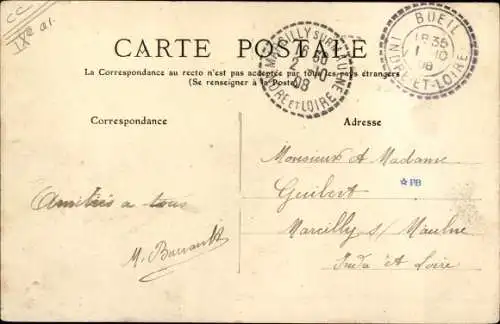 CC
IXe a1.
CARTE POSTALE
MARCILLY SUR MAULNE
16 50
2 - 10
08
INDRE ET LOIRE
BUEIL
18 35
1 10
08
INDRE-ET-LOIRE
La Correspondance au recto n'est pas acceptée par tous les pays étrangers
(Se renseigner à la Poste)
Correspondance
Adresse
Monsieur et Madame
Guibert
Marcilly s/ Maulne
Indre et Loire
Amitiés a tous
M. Barrault
PB